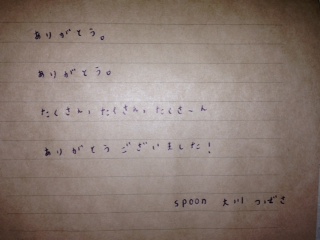 ありがとう。
ありがとう。
たくさん、たくさん、たくさーん
ありがとうございました!
spoon 大川 つばさ